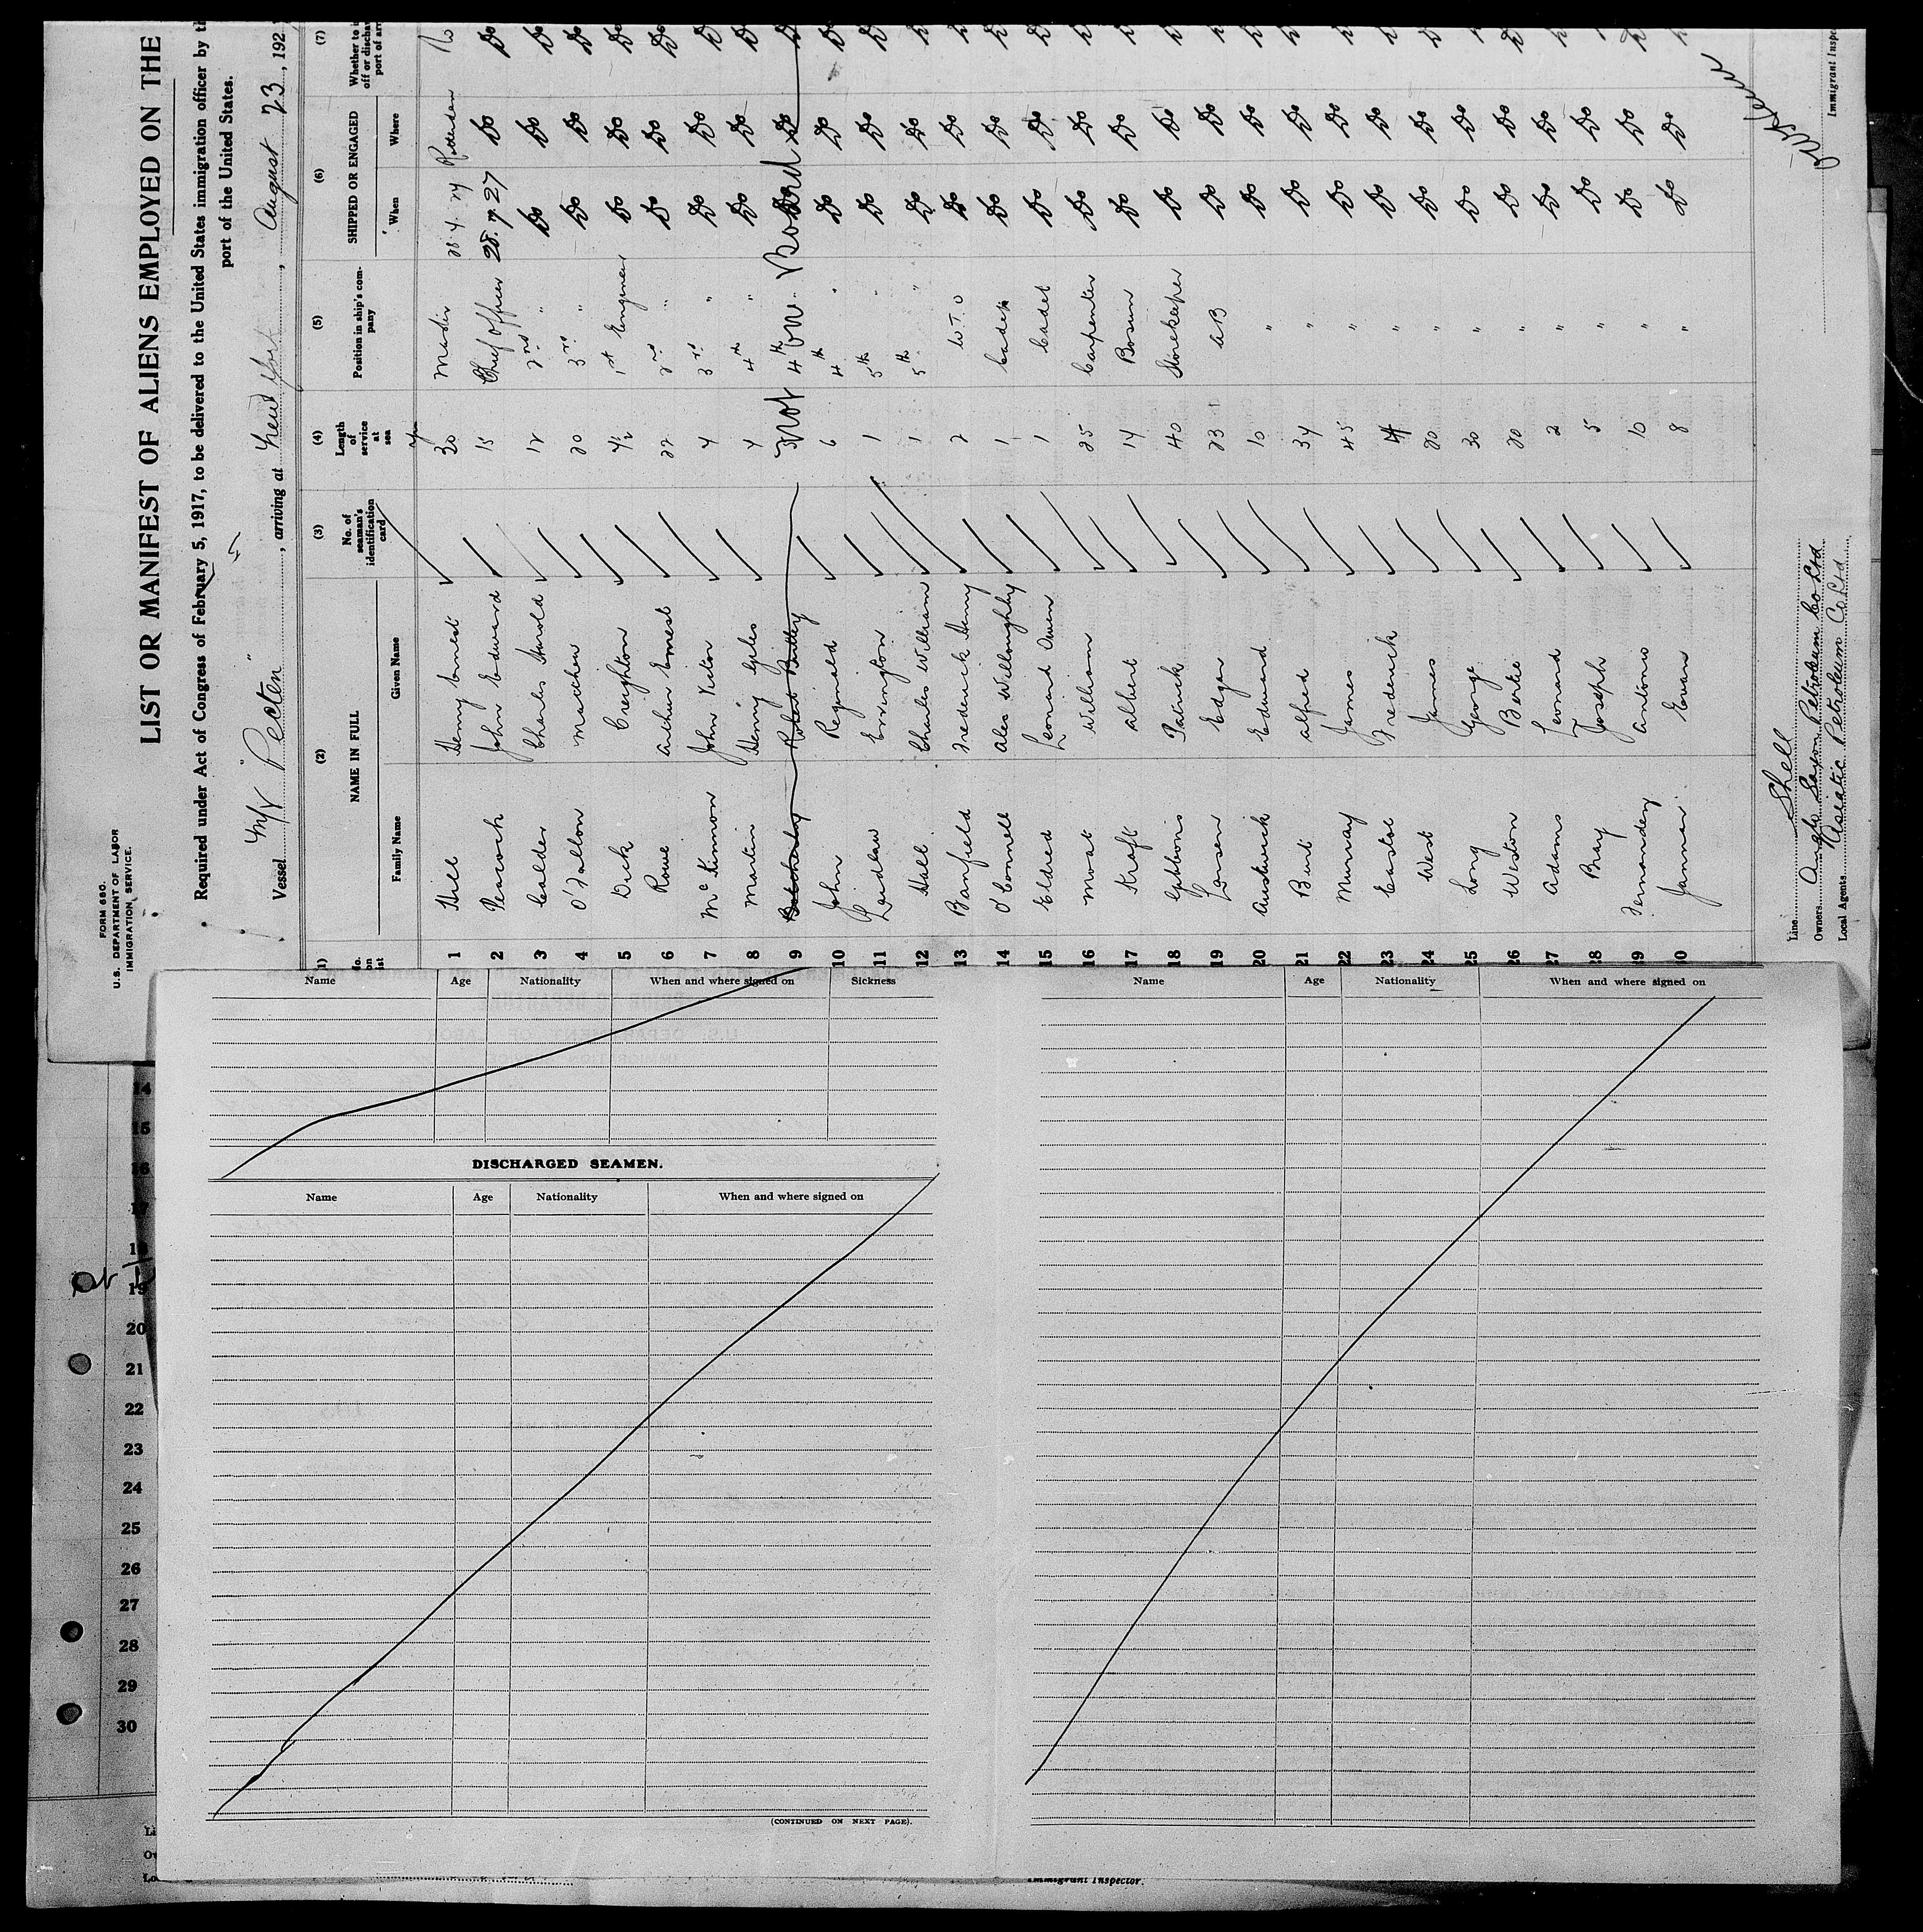 FORM 680.
U.S. DEPARTMENT OF LABOR
IMMIGRATION SERVICE.
LIST OR MANIFEST OF ALIENS EMPLOYED ON THE
Required under Act of Congress of February 5, 1917, to be delivered to the United States immigration officer by
port of the United States.
Vessel M/V "Pecten", arriving at New York, August 23, 192
(2) (3) (4) (5) (6) (7)
NAME IN FULL No. of seaman's identification card Length of service at sea Position in ship's company SHIPPED OR ENGAGED Whether to
Family Name Given Name When Where
1 Hill Henry Ernest 30 Master No
2 Peacock John Edward 15 Chief Officer 28.7.27 Do Do
3 Calder Charles Harold 12 2nd " Do Do Do
4 O'Fallon Matthew 20 3rd " Do Do Do
5 Dick Creighton 4½ 1st Engineer Do Do Do
6 Rowe Arthur Ernest 22 2nd " Do Do Do
7 McKinnon John Victor 4 3rd " Do Do Do
8 Martin Henry Giles 4 4th " Do Do Do
9 Robert 3 4th Do Do Do
Not on Board
10 John Reginald 6 4th " Do Do Do
11 Laidlaw Errington 1 5th " Do Do Do
12 Hall Charles William 1 5th " Do Do Do
13 Banfield Frederick Henry 2 W.T.O Do Do Do
14 O'Connell Alec Willoughby 1 Cadet Do Do Do
15 Eldred Leonard Owen 1 Cadet Do Do Do
16 Moat William 25 Carpenter Do Do Do
17 Kraft Albert 14 Bosun Do Do Do
18 Gibbons Patrick 40 Storekeeper Do Do Do
19 Larsen Edgar 23 AB Do Do Do
20 Austwick Edward 10 " Do Do Do
21 Burt Alfred 34 " Do Do Do
22 Murray James 45 " Do Do Do
23 Easter Frederick 4 " Do Do Do
24 West James 20 " Do Do Do
25 Long George 30 " Do Do Do
26 Weston Bertie 20 " Do Do Do
27 Adams Leonard 2 " Do Do Do
28 Bray Joseph 5 " Do Do Do
29 Fernandez Antonio 10 " Do Do Do
30 Janner Evan 8 " Do Do Do
Line Shell
Owners Anglo Saxon Petroleum Co Ltd
Local Agents Asiatic Petroleum Co Ltd
Immigrant Inspe
Name Age Nationality When and where signed on Sickness
DISCHARGED SEAMEN.
Name Age Nationality When and where signed on
(CONTINUED ON NEXT PAGE).
Name Age Nationality When and where signed on
14
15
16
17
18
19
20
21
22
23
24
25
26
27
28
29
30
Immigrant Inspector.